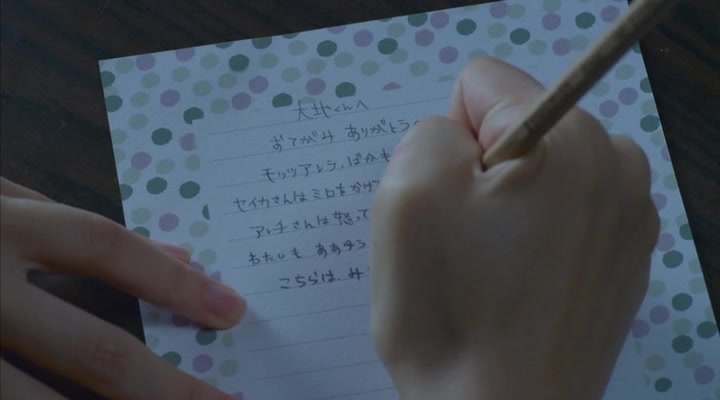 大地くんへ
おてがみ ありがとう
モッツアレラ、ばかも
セイカさんは ミロを かけ
アレチさんは 怒って
わたしも ああゆう
こちらは、み